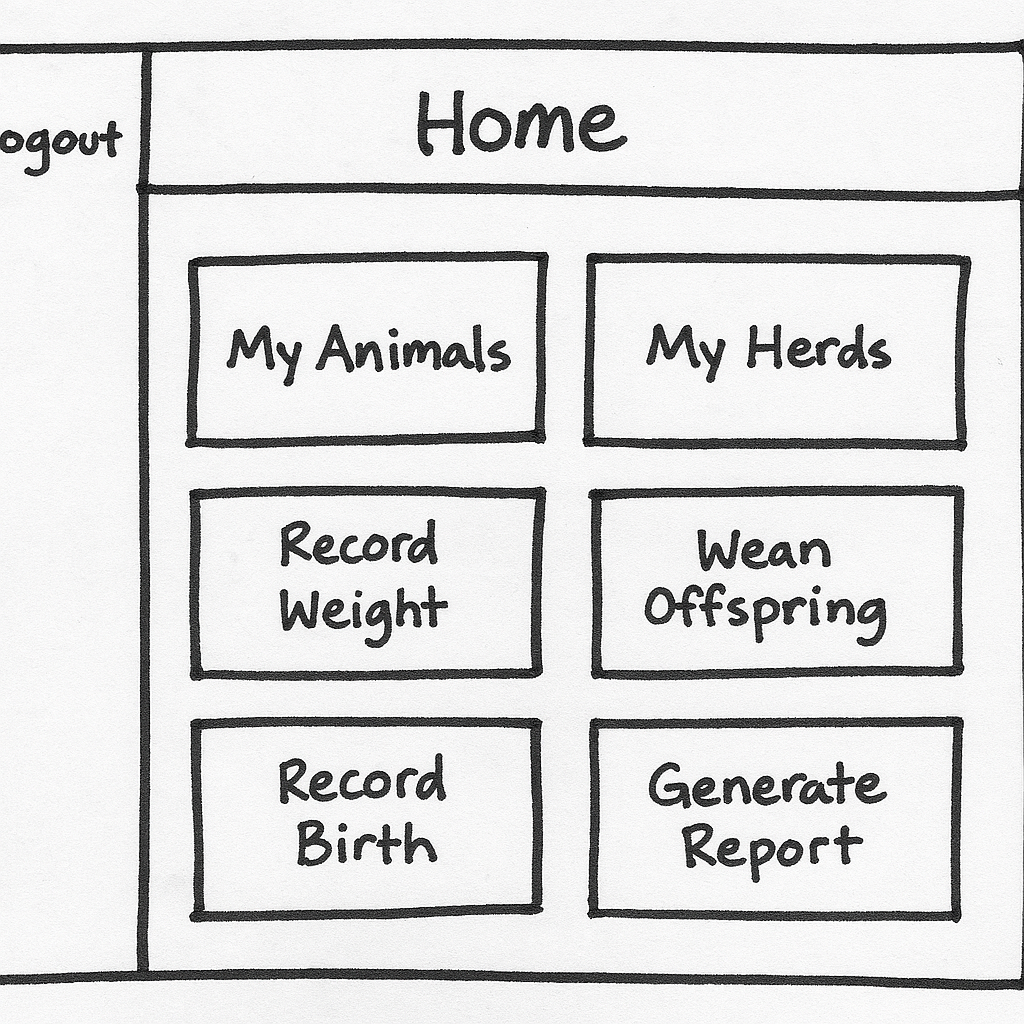 ogout
Home
My Animals
My Herds
Record
Weight
Wean
Offspring
Record
Birth
Generate
Report